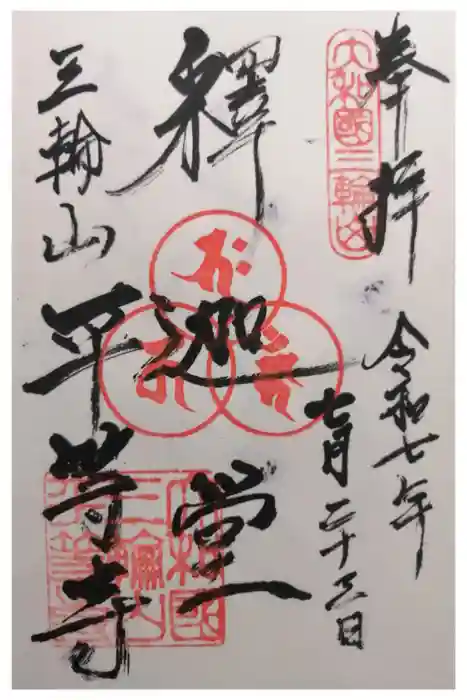 奉拝
大和國三輪山
令和七年
七月二十三日
釋迦堂
三輪山
平等寺